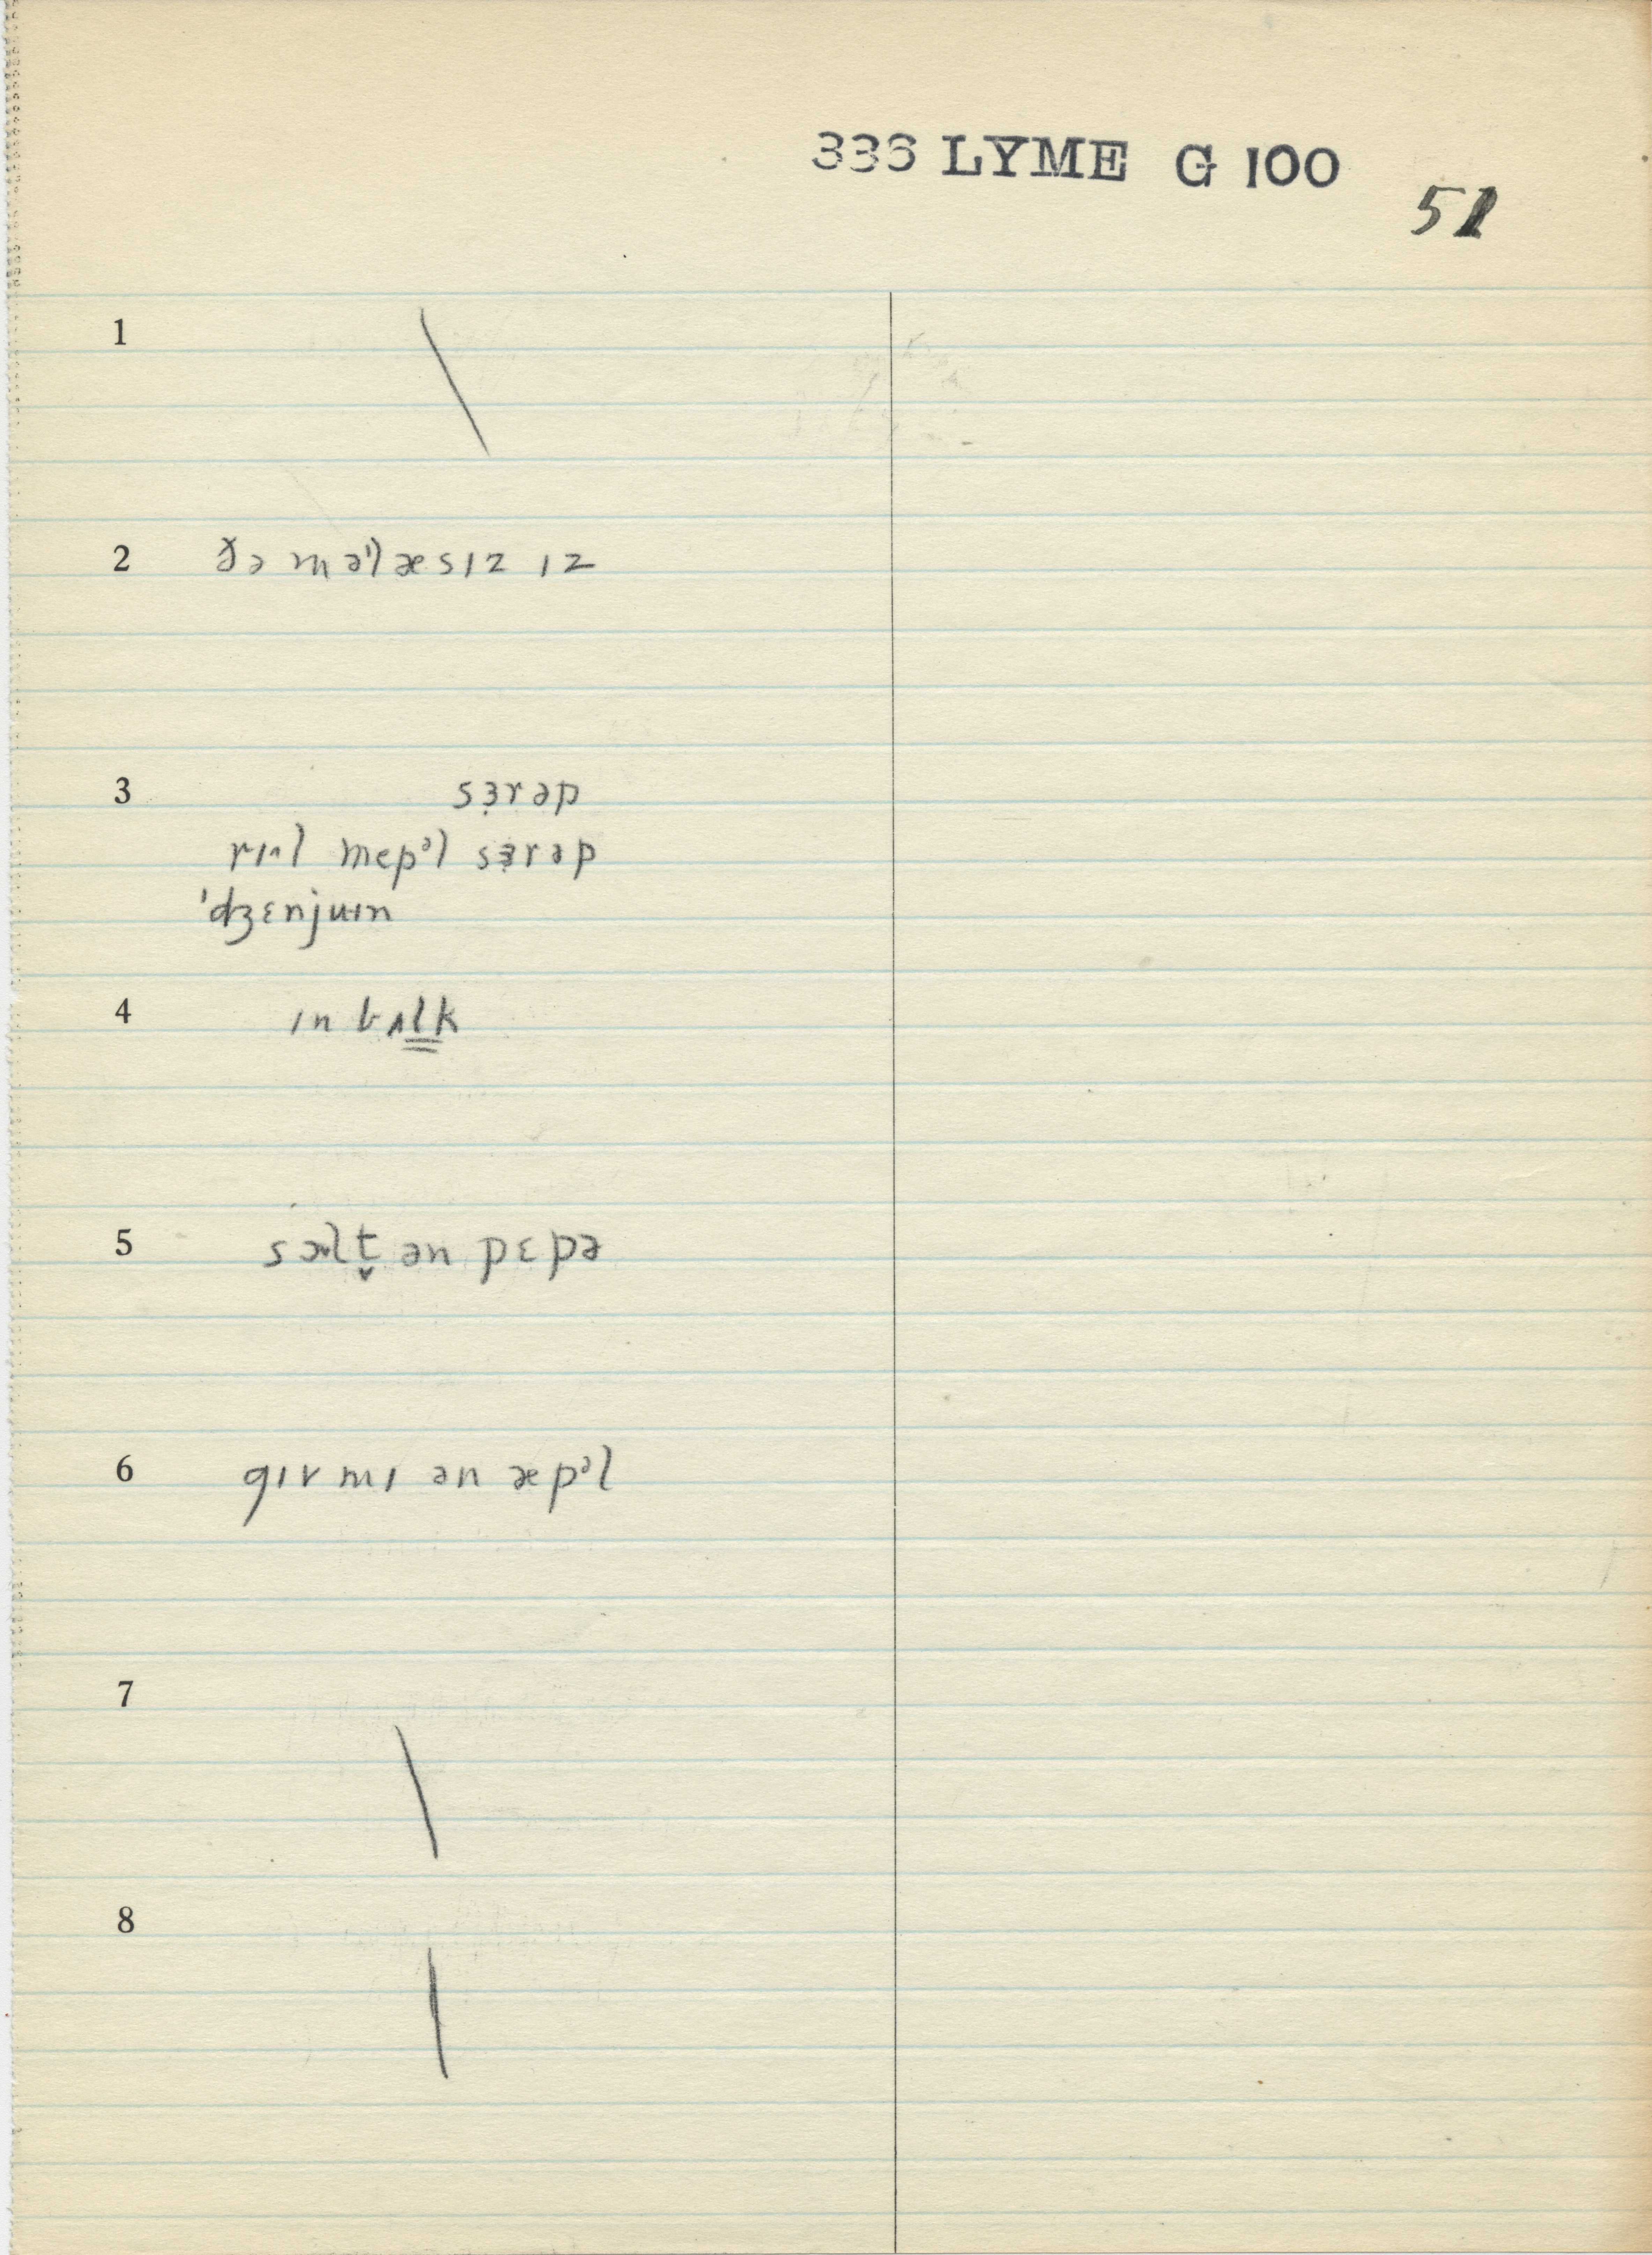 336 LYME G 100
51
1
2 ðə məˈlæsɪz ɪz
3 sɜ̣rəp
rɪᵊl mepᵊl sɜ̣rəp
ˈdʒɛnjuɪn
4 ɪn bʌlk
5 sɔlt̬ ən pɛpə
6 gɪv mɪ ən æpᵊl
7
8